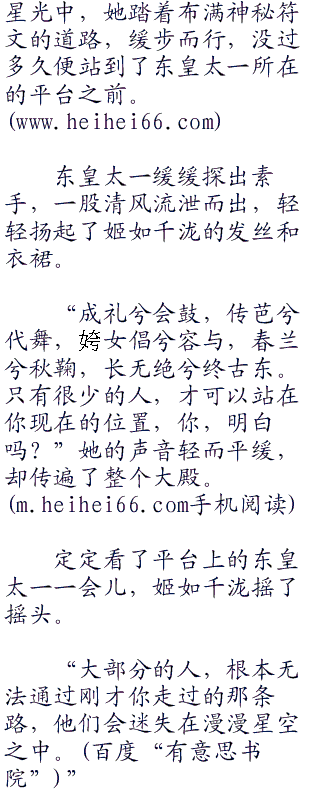 星光中，她踏着布满神秘符
文的道路，缓步而行，没过
多久便站到了东皇太一所在
的平台之前。
(www.heihei66.com)
东皇太一缓缓探出素
手，一股清风流泄而出，轻
轻扬起了姬如千泷的发丝和
衣裙。
“成礼兮会鼓，传芭兮
代舞，姱女倡兮容与，春兰
兮秋鞠，长无绝兮终古东。
只有很少的人，才可以站在
你现在的位置，你，明白
吗？”她的声音轻而平缓，
却传遍了整个大殿。
(m.heihei66.com手机阅读)
定定看了平台上的东皇
太一一会儿，姬如千泷摇了
摇头。
“大部分的人，根本无
法通过刚才你走过的那条
路，他们会迷失在漫漫星空
之中。(百度“有意思书
院”)”